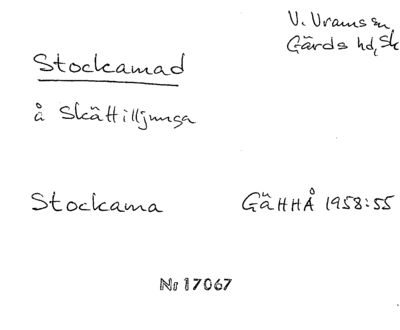 V. Vram sn,
Gärds hd, Sk
Stockamad
å Skättilljunga
Stockama GäHHÅ 1958:55
Nr 17067